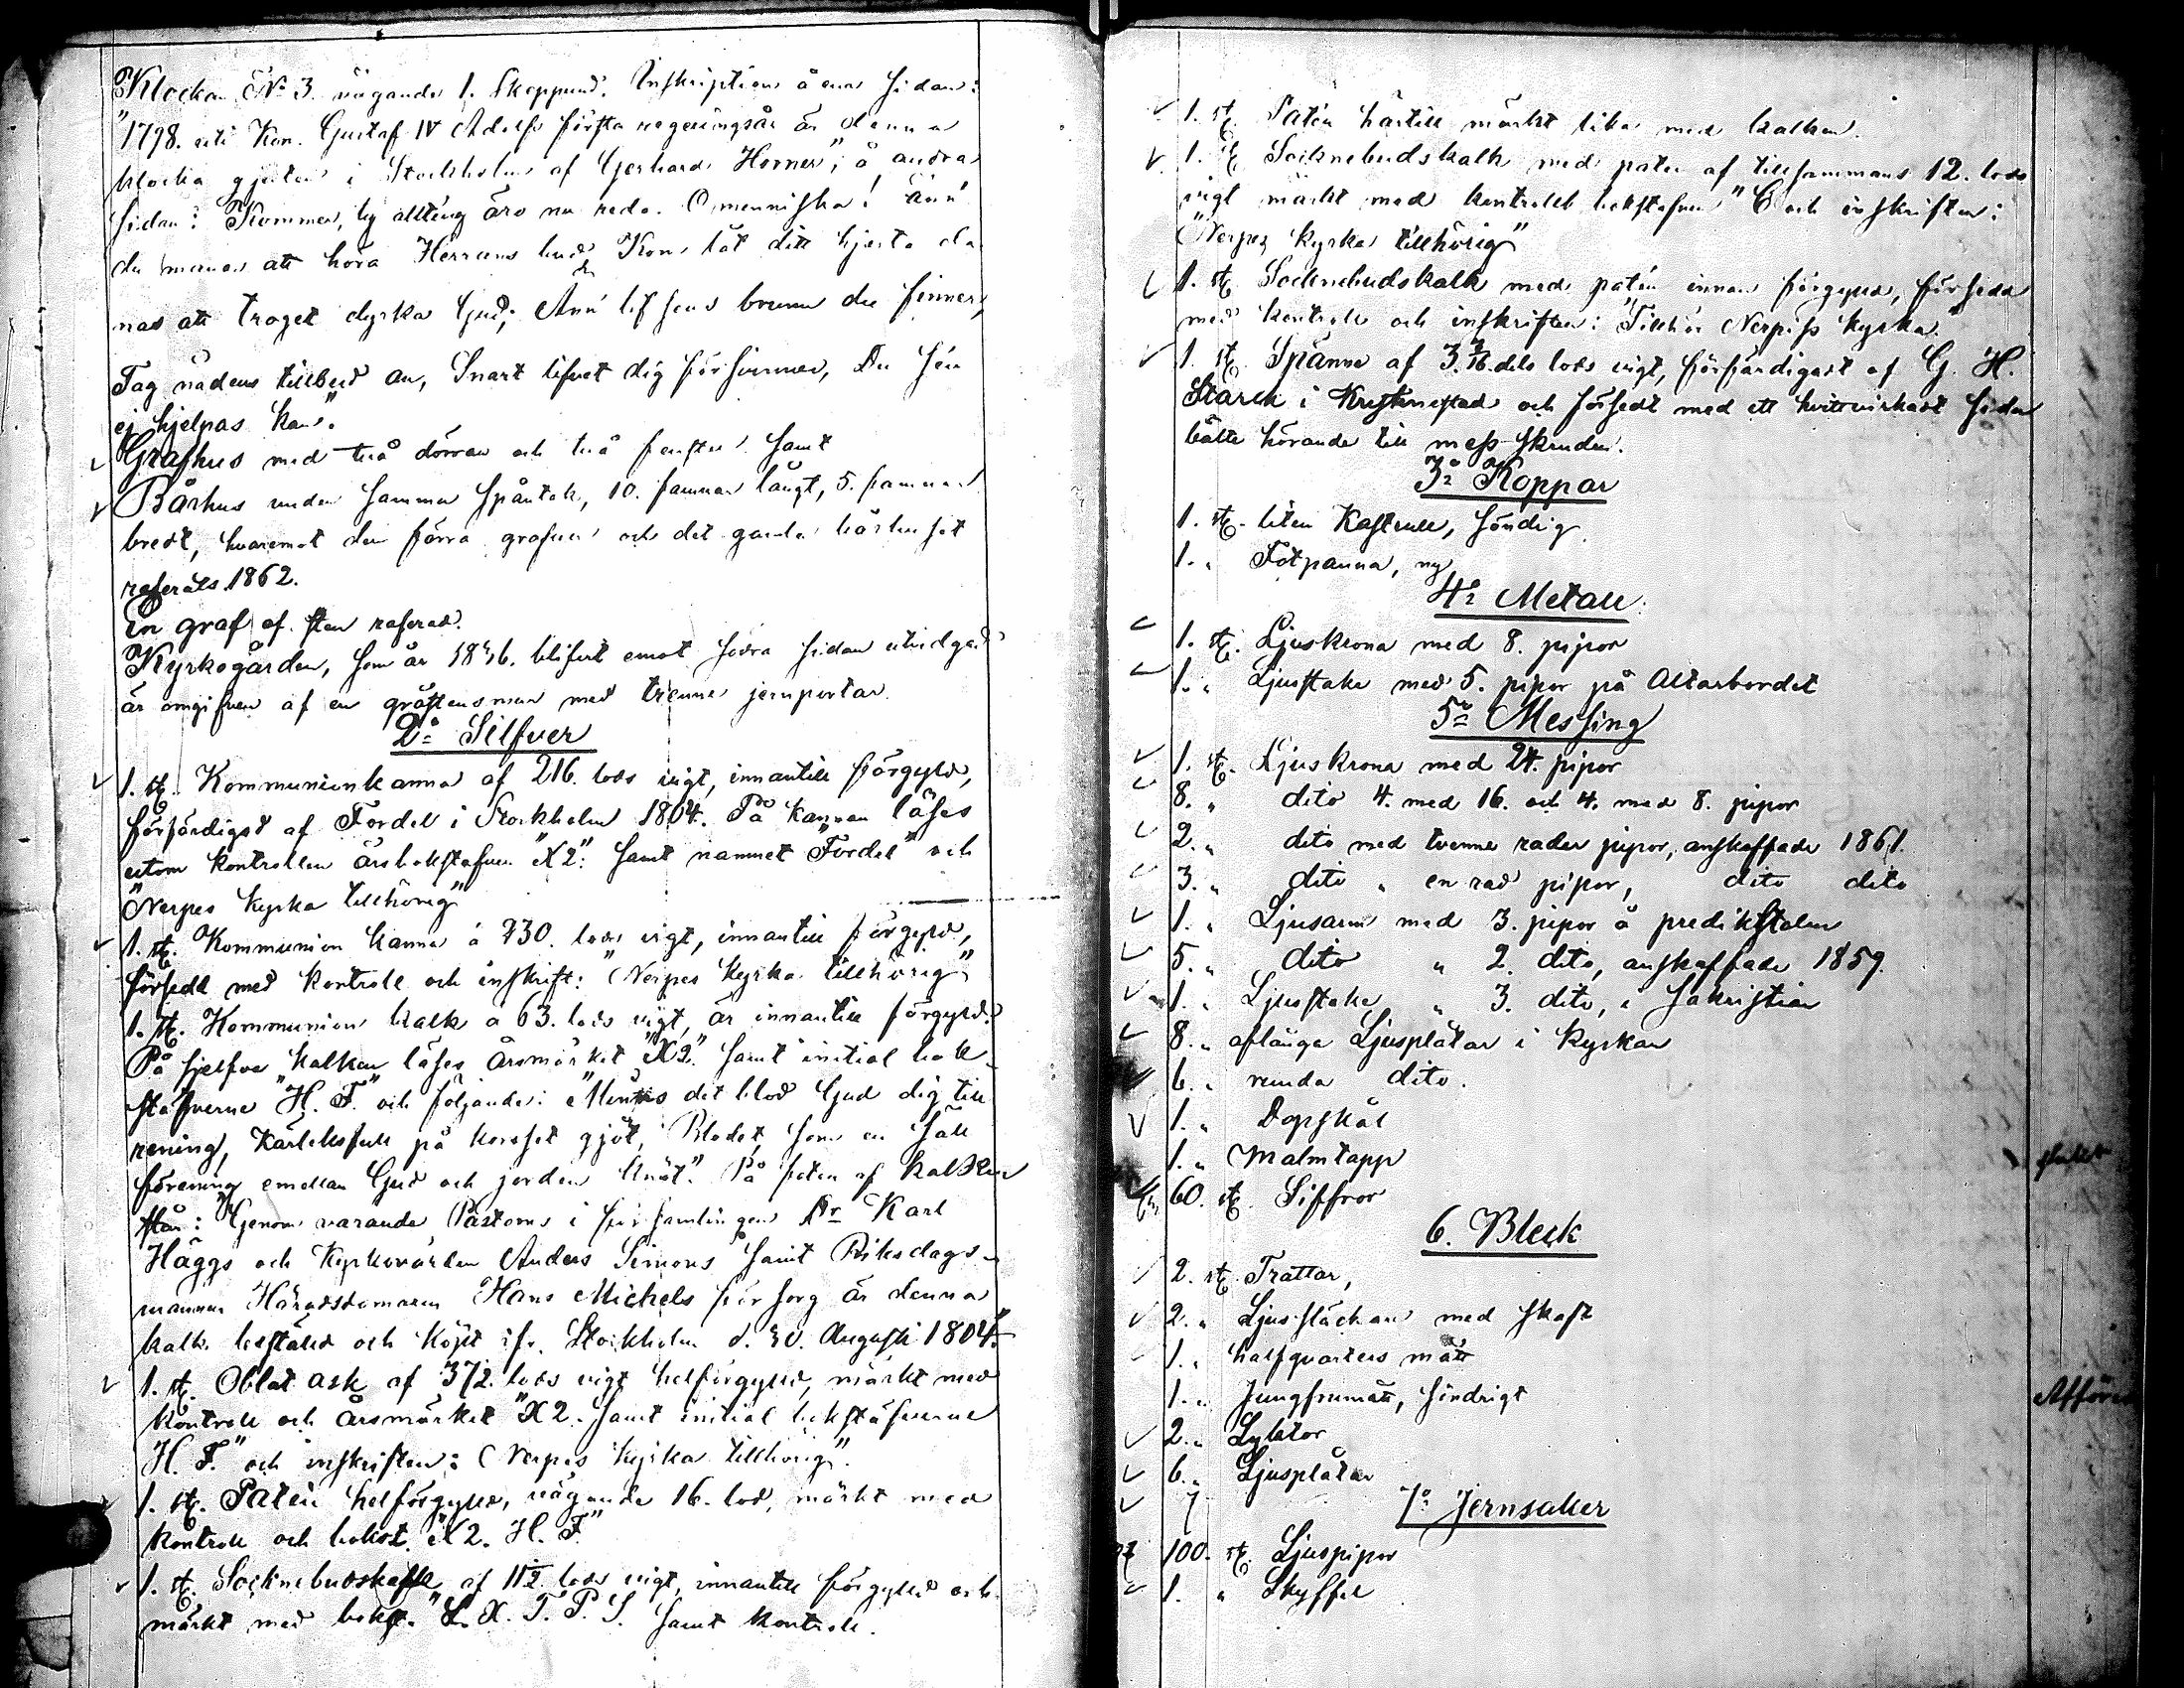 Klockan No 3. vägande 1. Skeppund. Inskription å ena sidan:
"1798. uti Kon. Gustaf IV Adolfs första regeringsår är denna
klocka gjuten i Stockholm af Gerhard Horner"; å andra
sidan: "Kommer, ty allting äro nu redo. O menniska! änn
du manas att höra Herrans bud Kom låt ditt hjerta da
nas att troget dyrka Gud; Änn lifsens brunn du finner,
Tag nådens tillbud an, Snart lifvet dig försvinner, Du sen
ej hjelpas kan".
Grafhus med två dörrar och två fenster samt
Bårhus under samma spåntak, 10. famnar långt, 5. famnar
bredt, hvaremot den förra grafven och det gamla bårhuset
raserats 1862.
En graf af sten raserad.
Kyrkogården, som år 1856. blifvit emot södra sidan utvidgad
är omgifven af en gråstensmur med trenne jernportar.
2o Silfver
1. st. Kommunionkanna af 216. lods vigt, innantill förgyld,
förfärdigad af Fordel i Stockholm 1804. På kannan läses
utom kontrollen årsbokstafven "X2": samt namnet "Fordel" och
"Nerpes kyrka tillhörig"
1. st. Kommunion kanna à 730. lods vigt, innantill förgyld,
försedd med kontroll och inskrift: "Nerpes kyrka tillhörig"
1. st. Kommunion kalk a 63. lods vigt, är innantill förgyld.
På sjelfva kalken läses årsmärket "X2." samt initial bok
stäfverne "H. F." och följande: "Menskas det blod Gud dig till
rening, Kärleksfull på korset gjöt, Blodet, som en säll
förening emellan Gud och jorden knöt". På foten af kalken
står: "Genom varande Pastorns i församlingen Dr Karl
Häggs och Kyrkovärden Anders Simons samt Riksdags-
mannen Häradsdomaren Hans Michels försorg är denna
kalk bestäld och köpt ifr. Stockholm d. 30. Augusti 1804."
1. st. Oblat ask af 372. lods vigt helförgylld, märkt med
kontroll och årsmärket "X2. samt initial bokstäfverne
H. F." och inskriften: "Nerpes kyrka tillhörig".
1. st. Patén helförgylld, vägande 16. lod, märkt med
kontroll och bokst. "X2. H. F."
1. st. Socknebudskalk af 11½ lods vigt, innantill förgylld och
märkt med bokst. "L. X. T. P. S. samt kontroll.
1. st. Patén härtill märkt lika med kalken.
1. st. Socknebudskalk med patén af tillsammans 12. lods
vigt märkt med kontroll bokstafven "C och inskriften:
"Nerpes kyrka tillhörig"
1. st. Socknebudskalk med patén innan förgylld, försedd
med kontroll och inskriften: "Tillhör Nerpiss kyrka."
1. st. Spänne af 3. dels lods vigt, förfärdigadt af G. H.
Starck i Kristinestad och försedt med ett hvittvirkadt siden
bälte hörande till mess-skruden.
3o Koppar
1. st. liten Kastrull, söndrig
1. " Fotpanna, ny
4o Metall
1. st. Ljuskrona med 8. pipor
1. " Ljusstake med 5. pipor på Altarbordet
5o Messing
1. st. Ljuskrona med 24. pipor
8. " dito 4. med 16. och 4. med 8. pipor
2. " dito med tvenne rader pipor, anskaffade 1861.
3. " dito " en rad pipor, dito dito
1. " Ljusarm med 3. pipor å predikstolen
5. " dito " 2. dito, anskaffade 1859.
1. " Ljusstake " 3. dito, i Sakristian
8. " aflånga Ljusplåtar i kyrkan
6. " runda dito.
1. " Dopskål
1. " Malmtapp
60. st. Siffror
6. Bleck
2. st. Trattar,
2. " Ljussläckare med skaft
1. " halfqvarters mått
1. " Jungfrumått, söndrigt
2. " Lyktor
6. " Ljusplåtar
7
7o Jernsaker
100. st. Ljuspipor
1. " Skyffel